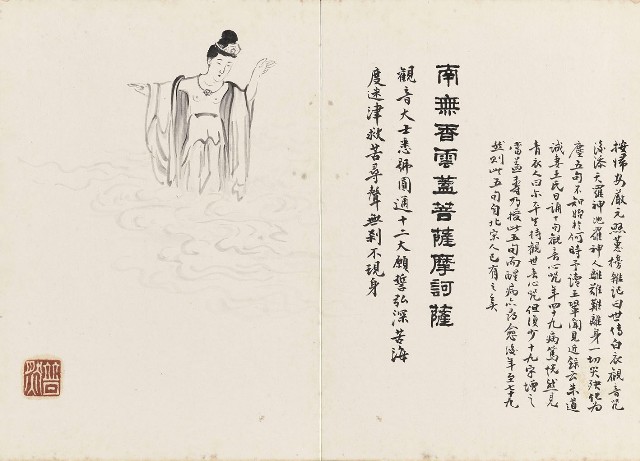 按歸安嚴元照蕙榜雜記曰世傳白衣觀音咒
後添天羅神地羅神人離難難離身一切災殃化為
塵五句不知始於何時予讀王鞏聞見近錄云朱道
誠妻王氏日誦十句觀音心咒年四十九病篤恍然見
青衣人曰爾平生持觀世音心咒但復少十九字增之
當益壽乃授此五句而醒病亦尋愈後年至七十九
然則此五句自北宋人已有之矣
南無香雲蓋菩薩摩訶薩
觀音大士悉號圓通十二大願誓弘深苦海
度迷津救苦尋聲無剎不現身